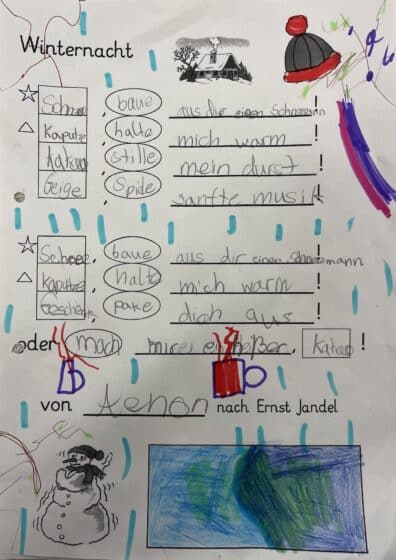 Winternacht
Schnee, baue aus dir einen Schneemann!
Kaputze, halte mich warm!
Kakau, stille mein durst!
Geige, Spiele sanfte musik!
Schnee, baue aus dir einen Schneemann!
Kaputze, halte mich warm!
Geschenk, pake dich aus!
oder mach mir ein heißer, Kakao!
von Kenon nach Ernst Jandel